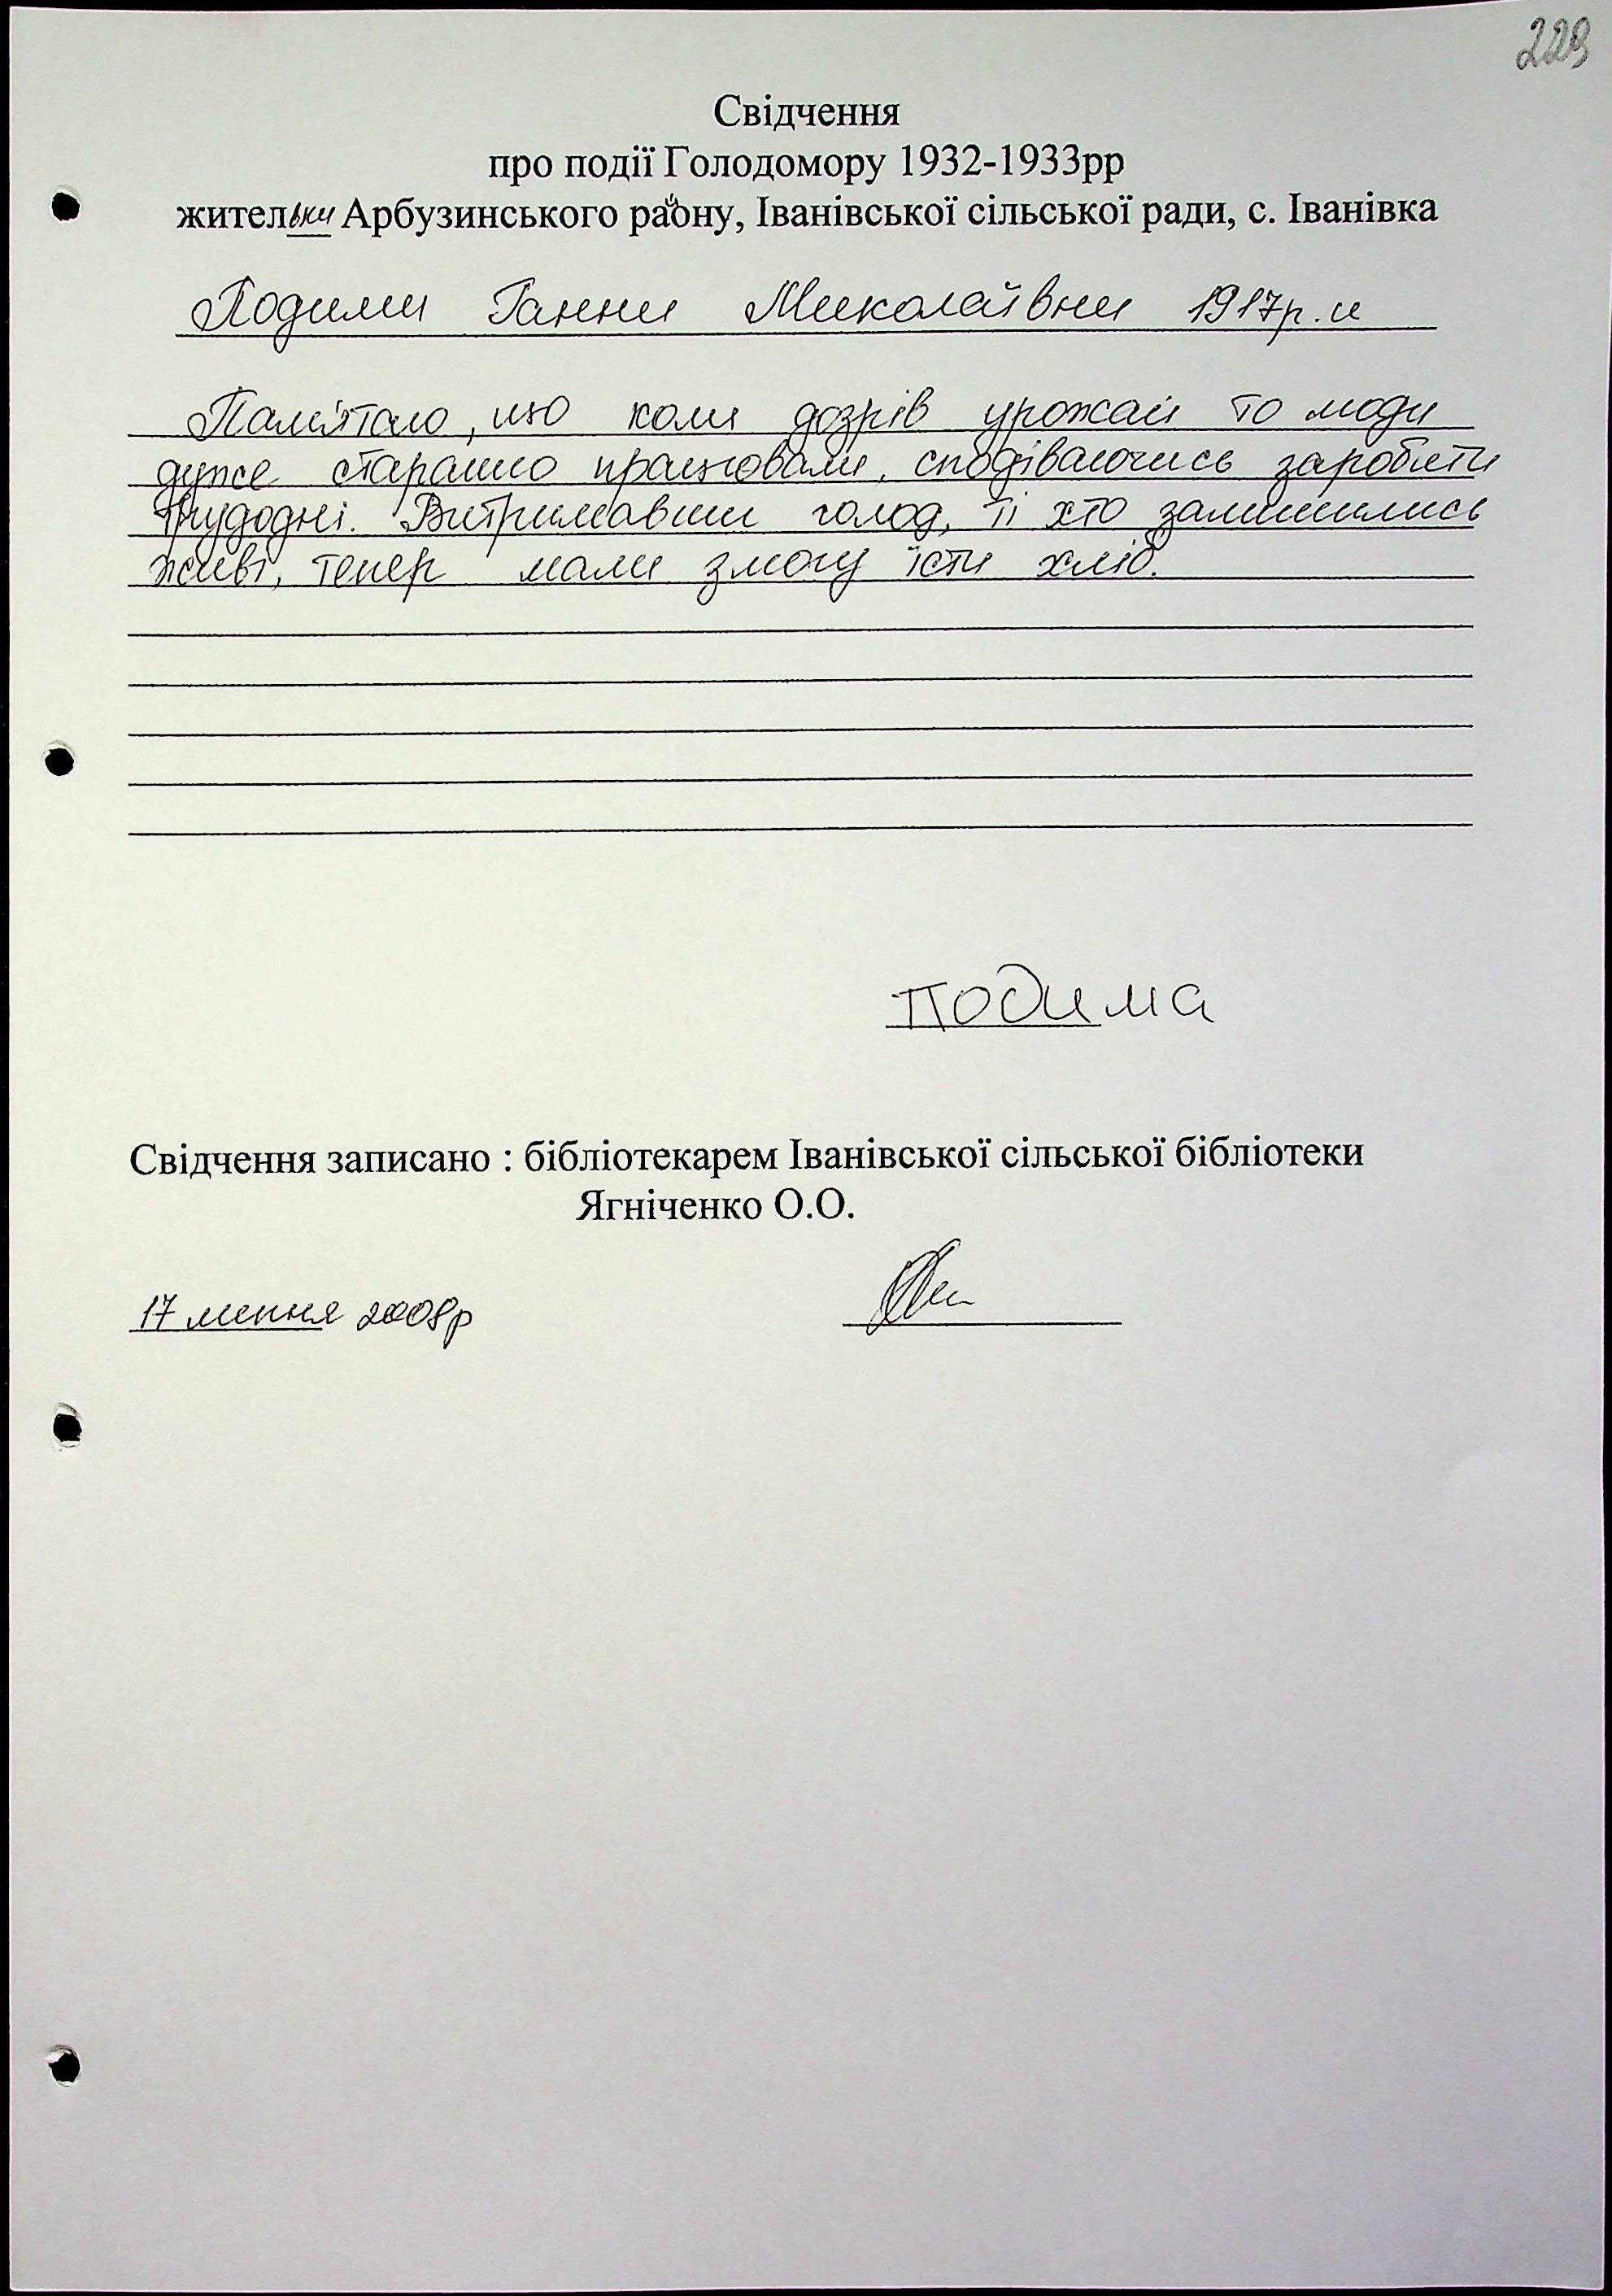 229
Свідчення
про події Голодомору 1932-1933рр
жительки Арбузинського району, Іванівської сільської ради, с. Іванівка
Подими Ганни Миколаївни 1917р.н
Пам'ятаю, що коли дозрів урожай то люди
дуже старанно працювали, сподіваючись заробити
трудодні. Витримавши голод, ті хто залишились
живі, тепер мали змогу їсти хліб.
Подима
Свідчення записано : бібліотекарем Іванівської сільської бібліотеки
Ягніченко О.О.
17 липня 2008р